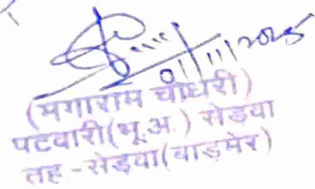 01/11/2025
(मगाराम चौधरी)
पटवारी(भू.अ.) सेड़वा
तह - सेड़वा(बाड़मेर)